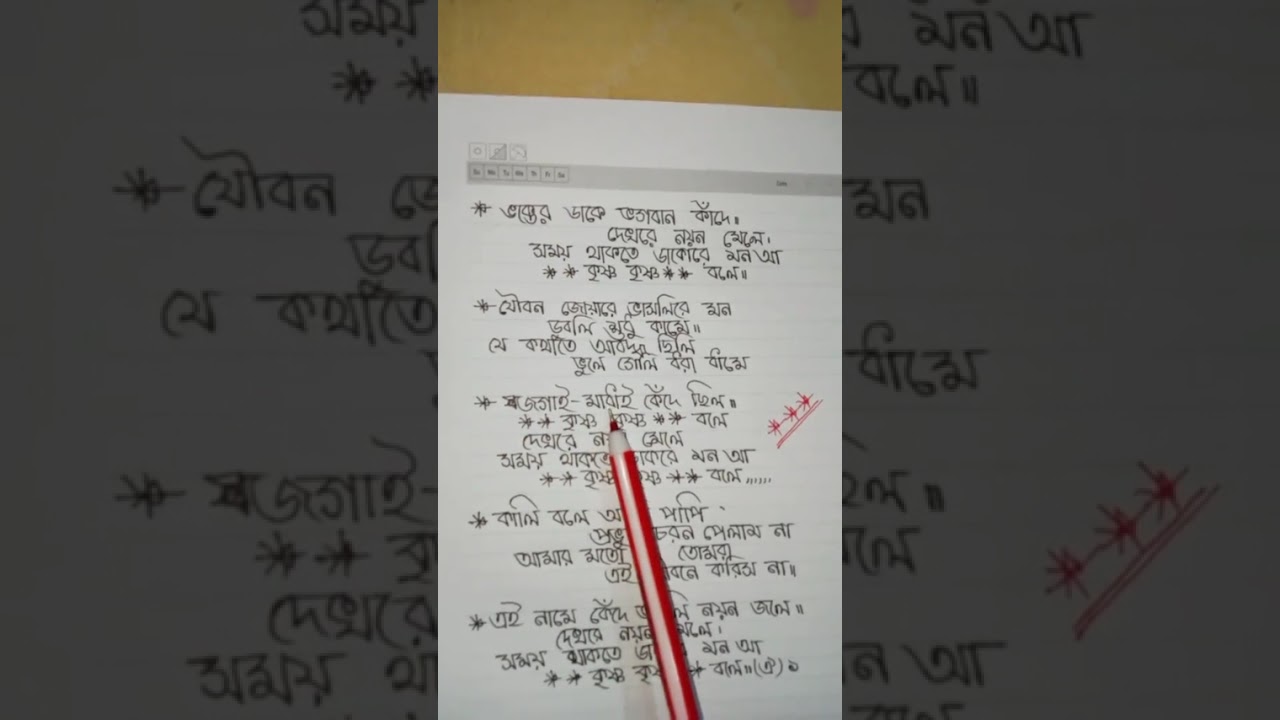 * ভক্তের ডাকে ভগবান কাঁদে৷৷
দেখরে নয়ন মেলে৷
সময় থাকতে ডাকোরে মন আ
** কৃষ্ণ কৃষ্ণ ** বলে৷৷
* যৌবন জোয়ারে ভাসলিরে মন
ডুবলি শুধু কামে৷৷
যে কথাতে আবদ্ধ ছিলি
ভুলে গেলি ধরা ধামে
* জগাই-মাধাই কেঁদে ছিল৷৷
** কৃষ্ণ কৃষ্ণ ** বলে
দেখরে মেলে
সময় থাকতে ডাকরে মন আ
** কৃষ্ণ ** বলে,,,,,,
* কালি বলে পাপি
চরন পেলাম না
আমার মতো তোমরা
এই করিস না৷৷
* এই নামে কেঁদে নয়ন জলে৷৷
দেখরে নয়ন মেলে৷
সময় থাকতে মন আ
** কৃষ্ণ * বলে৷৷(ঐ) ১